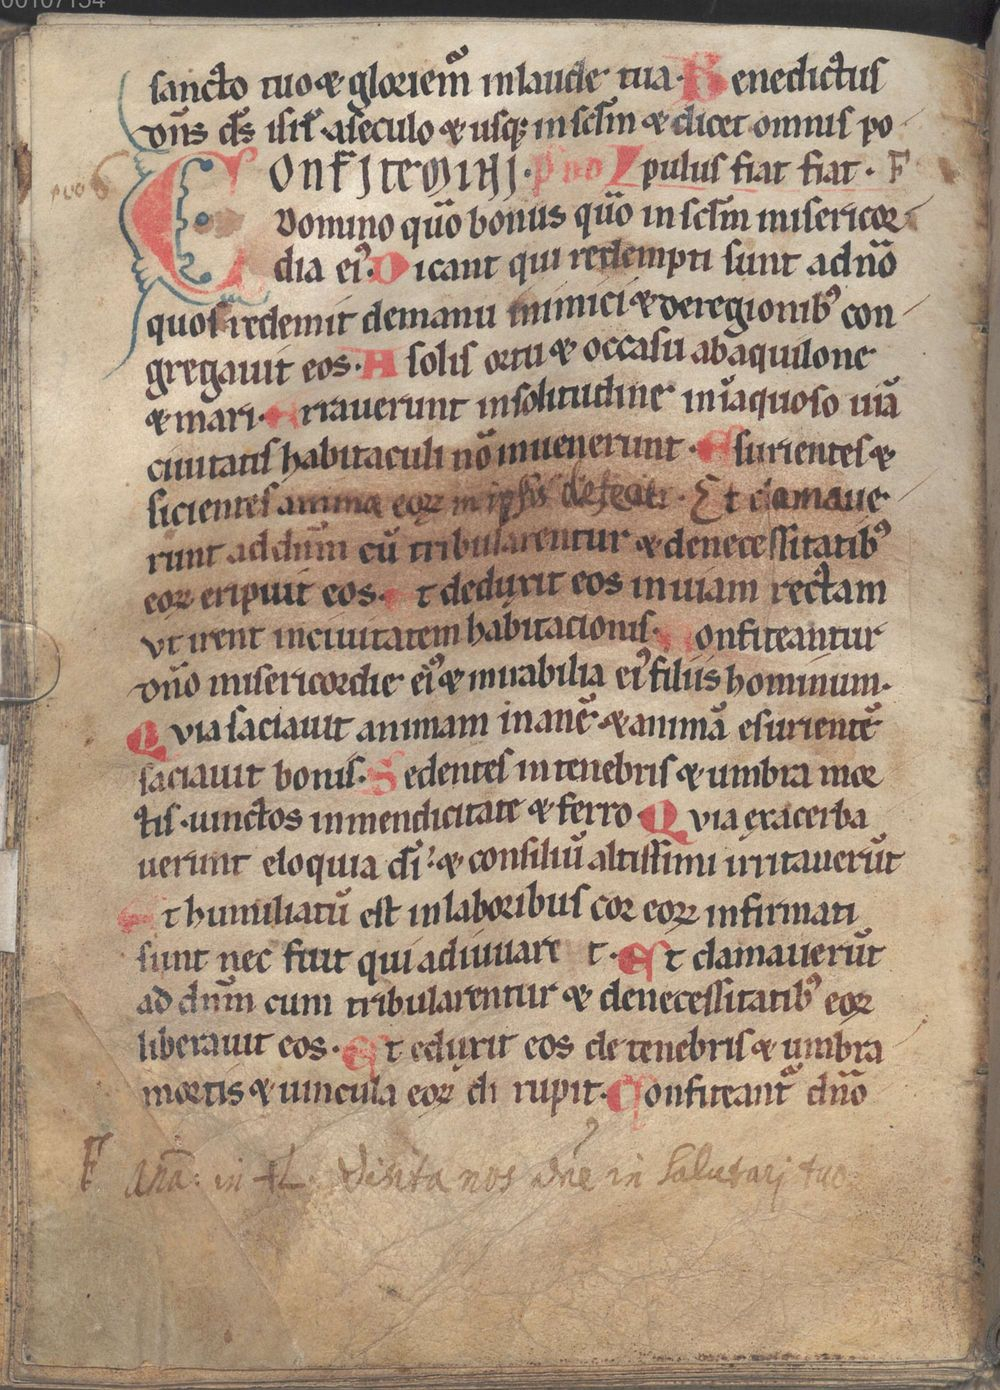 00107134
sancto tuo & gloriem̃ in laude tua. Benedictus
dñs ds̃ isrl̃ a seculo & usq; in sclm̃ & dicet omnis po
pulus fiat fiat. F
CONFITEMINI
Domino qũo bonus qũo in sclm̃ misericor
dia ei᾽. Dicant qui redempti sunt a dño
quos redemit de manu inimici & de regionib᾽ con
gregauit eos. A solis ortu & occasu ab aquilone
& mari. Erraverunt in solitudine inãquoso uiã
ciuitatis habitaculi nõ inuenerunt. Esurientes &
sicientes anima eoꝝ in ipsis defecit. Et clamaue
runt ad dñm cũ tribularentur & de necessitatib᾽
eoꝝ eripuit eos. Et deduxit eos in uiam rectam
vt irent in ciuitatem habitacionis. Confiteantur
dño misericordie ei᾽ & mirabilia ei᾽ filiis hominum.
Qvia saciauit animam inanẽ & animã esurientẽ
saciauit bonis. Sedentes in tenebris & umbra mor
tis uinctos in mendicitate & ferro Qvia exacerba
uerunt eloquia dĩ & consiliũ altissimi irritauerũt
Et humiliatũ est in laboribus cor eoꝝ infirmati
sunt nec fuit qui adiuuaret. Et clamauerũt
ad dñm cum tribularentur & de necessitatib᾽ eoꝝ
liberauit eos. Et eduxit eos de tenebris & umbra
mortis & uincula eoꝝ dirupit. Confiteant᾽ dño
F Aña: in Visita nos dñe in Salutarj tuo